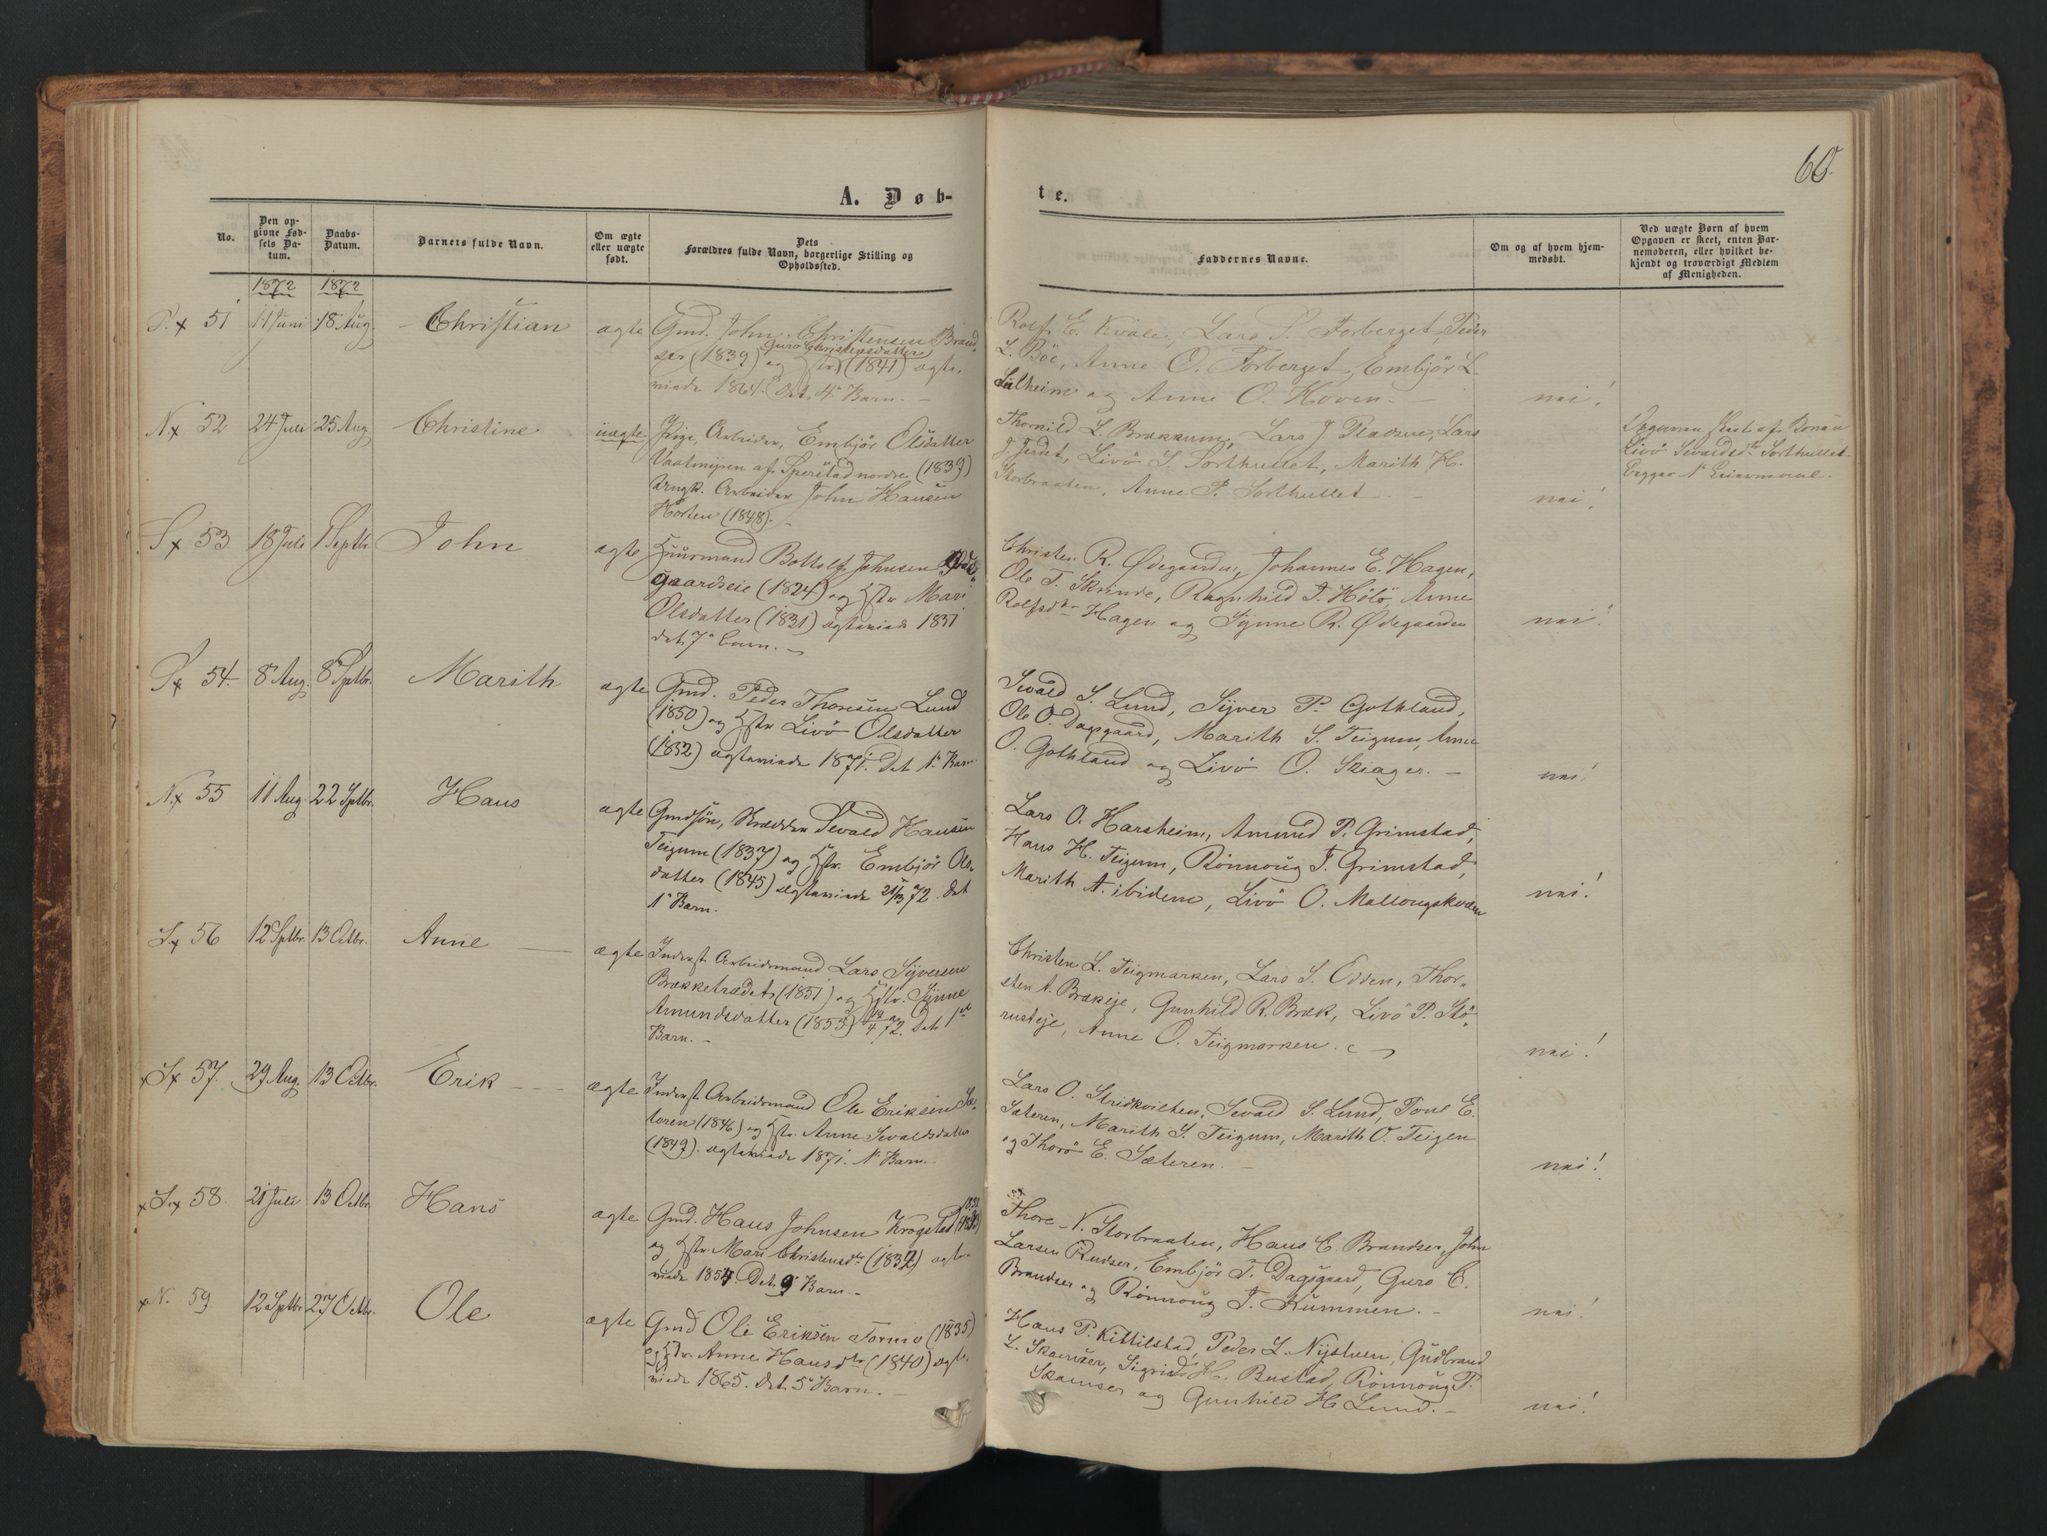 60.
A. Døb-
te.
No.
Den op-
givne Fød-
sels Da-
tum.
Daabs-
Datum.
Barnets fulde Navn.
Om ægte
eller uægte
født.
Dets
Forældres fulde Navn, borgerlige Stilling og
Opholdssted.
Faddernes Navne.
Om og af hvem hjem-
medøbt.
Ved uægte Børn af hvem
Opgaven er skeet, enten Bar-
nemoderen, eller hvilket be-
kjendt og troværdigt Medlem
af Menigheden.
1872 1872
P. x 51 11 Juni 18 Aug. Christian ægte
Gmd. John Christensen Brand-
Guro Christensdatter
ser (1839) og Hstr (1841) ægte-
viede 1864. Det 4de Barn. –
Rolf E. Kvale, Lars S. Forberget, Peder
L. Böe, Anne O. Forberget, Embjör L.
Sulheim og Anne O. Hoven. –
nei!
N x 52 24 Juli 25 Aug. Christine uægte
Pige, Arbeider, Embjör Olsdatter
af Sperstad nordre (1839)
Ungk. Arbeider John Hansen
Horten (1848). –
Thorkild L. Brækkum, Lars J. Lars
J. Livö S. Sorthullet, Marith H.
Storbraaten, Anne P. Sorthullet –
nei!
Livö Sivardsdr Sorthullet
S x 53 18 Juli 1 Septbr. John ægte
Huusmand Bottolf Johnsen
gaardseie (1824) og Hstr Mari
Olsdatter (1831) ægteviede 1851
det 7de barn. –
Christen R. Ødegaarden, Johannes E. Hagen,
Ole T. Skrinde, Ragnhild T. Hölö, Anne
Rolfsdtr Hagen og Synne R. Ødegaarden
nei!
P x 54. 8 Aug. 8 Sptbr. Marith ægte
Gmd. Peder Thoresen Lund
(1850) og Hstr Livö Olsdatter
(1852) ægteviede 1871. Det 1ste Barn
Sivald S. Lund, Syver P. Gothland,
Ole O. Dagsgaard, Marith S. Teigum, Anne
O. Gothland og Livö O. Skiager. –
nei!
N. x 55 11 Aug 22 Sptbr. Hans ægte
Gmdsön, Sevald Hansen
Teigum (1837) og Hstr. Embjör Ols-
datter (1845) ægteviede 21/3 72. Det
1ste Barn.
Lars O. Harsheim, Amund P. Grimstad,
Hans H. Teigum, Rönnoug T. Grimstad,
Marith A. ibidem, Livö O. Mallongskoden
nei!
S x 56 12 Sptbr. 13 Octbr. Anne ægte
Inderst Arbeidsmand Lars Syversen
Brækketrædet (1851) og Hstr. Synne
Amundsdatter (1853) 12/4 72. Det 1ste
Barn. –
Christen L. Teigmarken, Lars S. Odden, Thor-
sten A. Brækeje, Gunhild R. Bræk, Livö P. Stö-
rusteje, Anne O. Teigmarken.
nei!
x S x 57. 29 Aug. 13 Octbr. Erik ægte
Inderst Arbeidsmand Ole Eriksen Sæ-
teren (1846) og Hstr. Anne Sevaldsdatter
(1849). ægteviede 1871. 1ste Barn. –
Lars O. Stridkvilten, Sevald S. Lund, Tone E.
Sæteren, Marith S. Teigum, Marith O. Teigen
og Thorö E. Sæteren. –
nei!
x S. x 58. 21 Juli 13 Octbr Hans ægte
Gmd. Hans Johnsen Krogstad
og Hstr. Mari Christensdtr (1832) ægte-
viede 1854 Det 9de Barn. –
Thore N. Storbraaten, Hans C. Brandser, John
Larsen Rudser, Embjör T. Dagsgaard, Guro C.
Brandser og Rönnoug T. Kummen. –
nei!
x N. 59 12 Sptbr 27 Octbr. Ole ægte
Gmd Ole Eriksen Formo (1835)
og Hstr. Anne Hansdtr (1840) ægte-
viede 1865. det 5te Barn. –
Hans P. Kittilstad, Peder L. Nystuen, Gudbrand
L. Skamser, Sigrid H. Bustad, Rönnoug P.
Skamser og Gunhild H. Lund. –
nei!